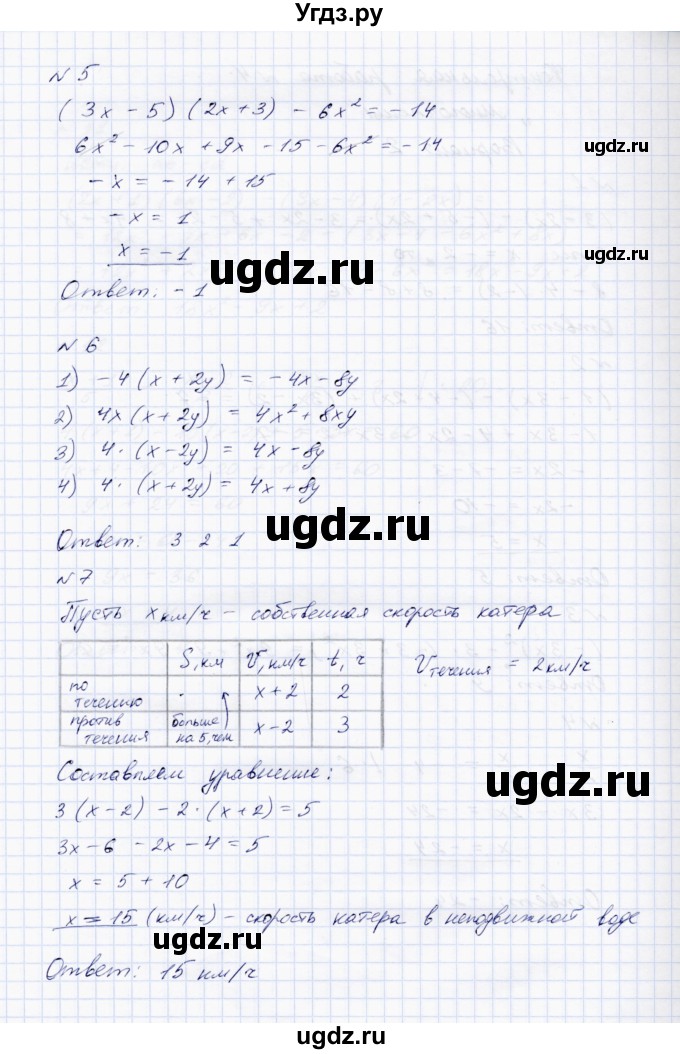 Угдз.ру
№ 5
(3x – 5) (2x + 3) – 6x² = – 14
6x² – 10x + 9x – 15 – 6x² = – 14
ugdz.ru
– x = – 14 + 15
– x = 1
x = – 1
ugdz.ru
ugdz.ru
Ответ: – 1
№ 6
1) – 4 (x + 2y) = – 4x – 8y
2) 4x (x + 2y) = 4x² + 8xy
3) 4 · (x – 2y) = 4x – 8y
4) 4 · (x + 2y) = 4x + 8y
ugdz.ru
ugdz.ru
Ответ: 3 2 1
№ 7
Пусть x км/ч – собственная скорость катера
S, км V, км/ч t, ч
Vтечения = 2 км/ч
по течению · x + 2 2
против течения больше на 5, чем x – 2 3
Составляем уравнение:
ugdz.ru
3 (x – 2) – 2 · (x + 2) = 5
3x – 6 – 2x – 4 = 5
ugdz.ru
x = 5 + 10
x = 15 (км/ч) – скорость катера в неподвижной воде
ugdz.ru
ugdz.ru
Ответ: 15 км/ч
ugdz.ru